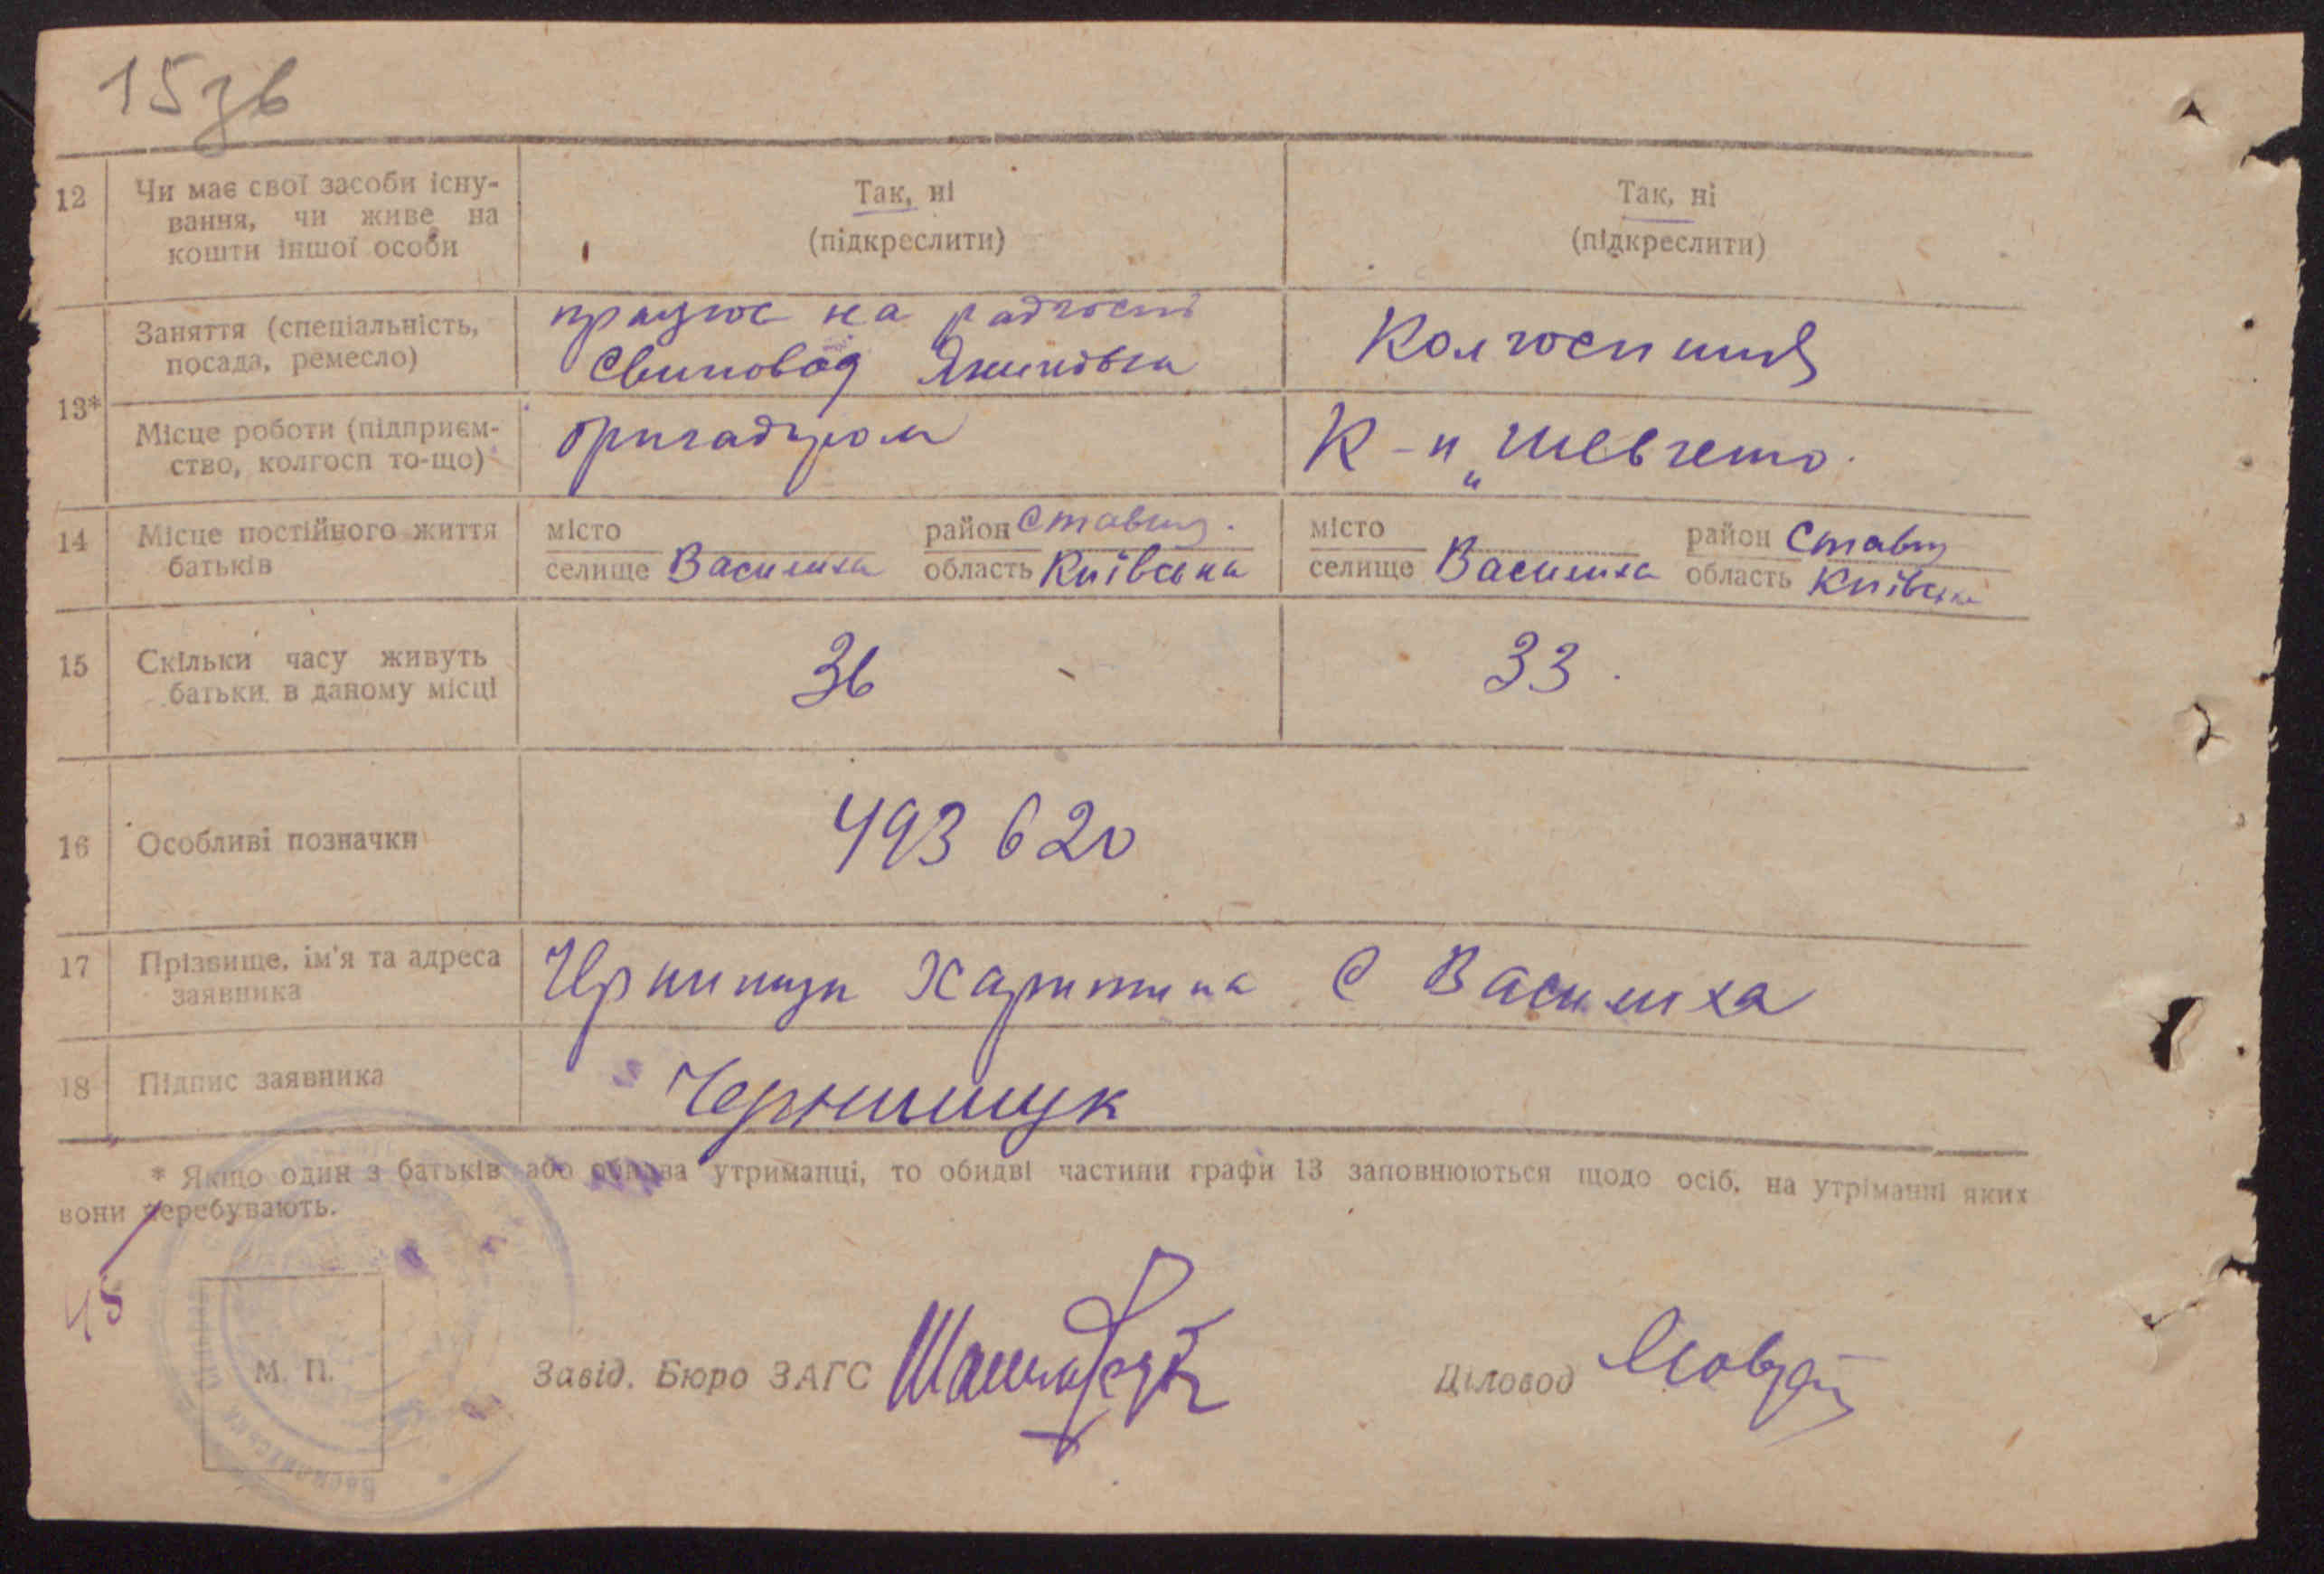 15 зв
12 Чи має свої засоби існу-
вання, чи живе на
кошти іншої особи
Так, ні
(підкреслити)
Так, ні
(підкреслити)
13*
Заняття (спеціальність,
посада, ремесло)
працює на радгоспі
Свиновод
Колгоспниця
Місце роботи (підприєм-
ство, колгосп то-що)
бригадиром
К-п „Шевченко.
14 Місце постійного життя
батьків
місто
селище Василиха
район Ставищ.
область Київська
місто
селище Василиха
район Ставищ
область Київська
15 Скільки часу живуть
батьки в даному місці
36
33.
16 Особливі позначки
493620
17 Прізвище, ім'я та адреса
заявника
Харитина С Василиха
18 Підпис заявника
Чернишук
* Якщо один з батьків або обидва утриманці, то обидві частини графи 13 заповнюються щодо осіб, на утріманні яких
вони перебувають.
45
М. П.
Завід. Бюро ЗАГС
Діловод